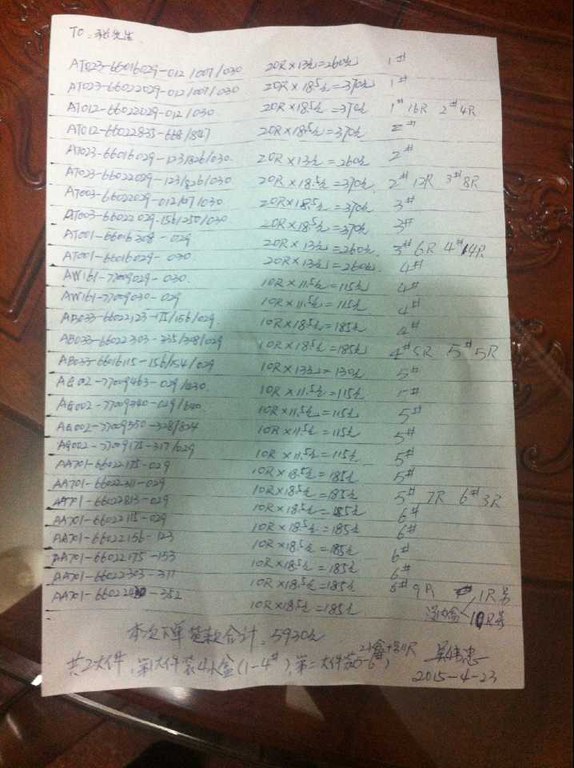 TO:
AT023-66016029-012/007/030 20R×13元=260元 1#
AT023-66022029-012/007/030 20R×18.5元=370元 1#
AT012-66022029-012/030 20R×18.5元=370元 1# 16R 2# 4R
AT012-66022835-668/847 20R×18.5元=370元 2#
AT023-66016029-123/826/030 20R×13元=260元 2#
AT023-66022029-123/826/030 20R×18.5元=370元 2# 12R 3# 8R
AT003-66022029-012/07/030 20R×18.5元=370元 3#
AT003-66022029-156/250/030 20R×18.5元=370元 3#
AT001-66016308-029 20R×13元=260元 3# 6R 4# 14R
AT001-66016029-030 20R×13元=260元 4#
AW161-77009029-030 10R×11.5元=115元 4#
AW161-77009030-029 10R×11.5元=115元 4#
AB033-66022123-175/156/029 10R×18.5元=185元 4#
AB033-66022303-335/308/029 10R×18.5元=185元 4# 5R 5# 5R
AB033-6616115-156/154/029 10R×13元=130元 5#
AG002-77009463-029/030 10R×11.5元=115元 5#
AG002-77009040-029/640 10R×11.5元=115元 5#
AG002-77009350-328/834 10R×11.5元=115元 5#
AG002-77009175-317/029 10R×11.5元=115元 5#
AA701-66022175-029 10R×18.5元=185元 5#
AA701-66022311-029 10R×18.5元=185元 5# 7R 6# 3R
AA701-66022813-029 10R×18.5元=185元 6#
AA701-66022115-029 10R×18.5元=185元 6#
AA701-66022156-123 10R×18.5元=185元 6#
AA701-66022175-153 10R×18.5元=185元 6#
AA701-66022303-317 10R×18.5元=185元 6# 9R 1R
AA701-66022-352 10R×18.5元=185元
本次下单 款合计：5930元
共2大件，第1大件装4小盒(1-4#)，第二大件装
2015-4-23